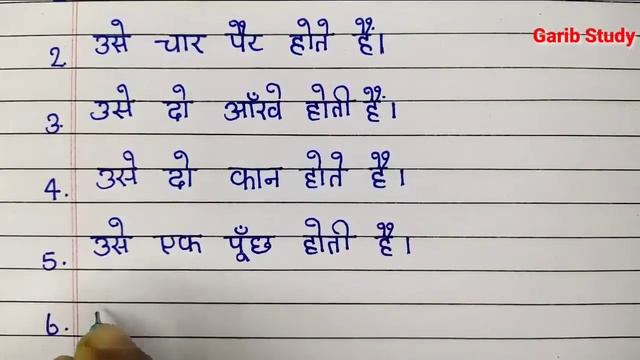 Garib Study
2. उसे चार पैर होते हैं।
3. उसे दो आँखे होती हैं।
4. उसे दो कान होते हैं।
5. उसे एक पूँछ होती है।
6.